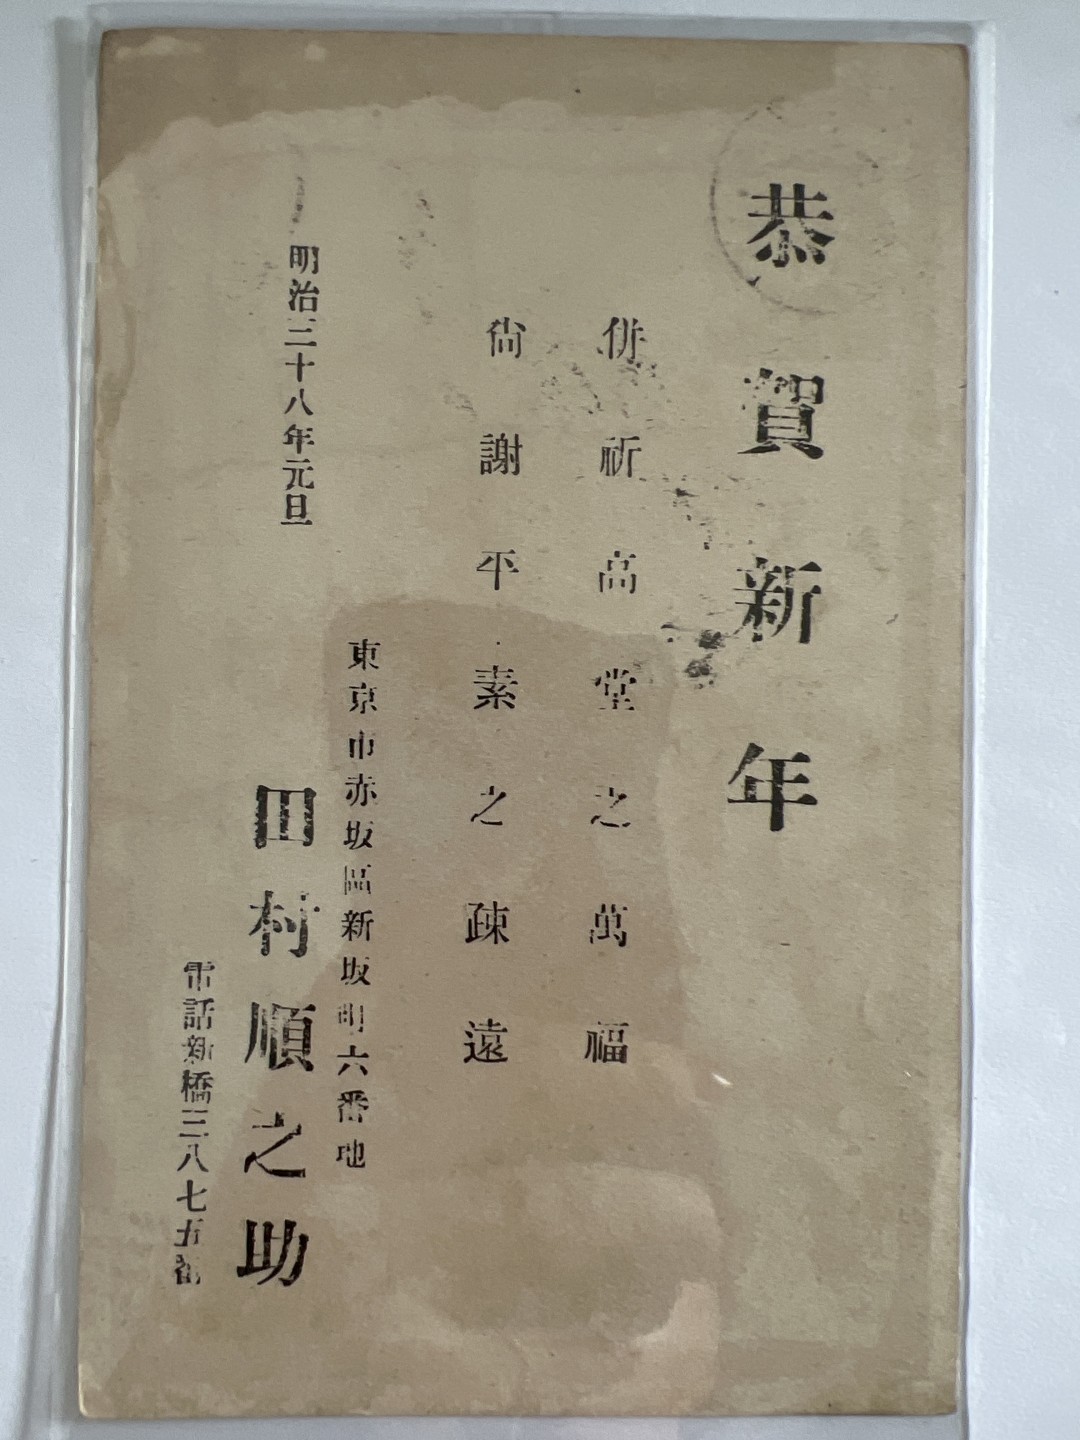 恭賀新年
併祈高堂之萬福
尙謝平素之疎遠
明治三十八年元旦
東京市赤坂區新坂町六番地
田村順之助
電話新橋三八七五番